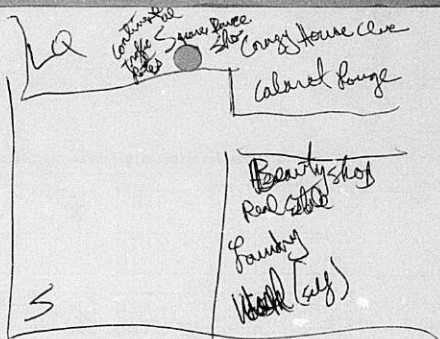 LQ
Continental
Traffic
Rates
Square Dance
Shop
Crazy House Club
Cabaret Lounge
Beauty shop
Real Estate
Laundry
(self)
S